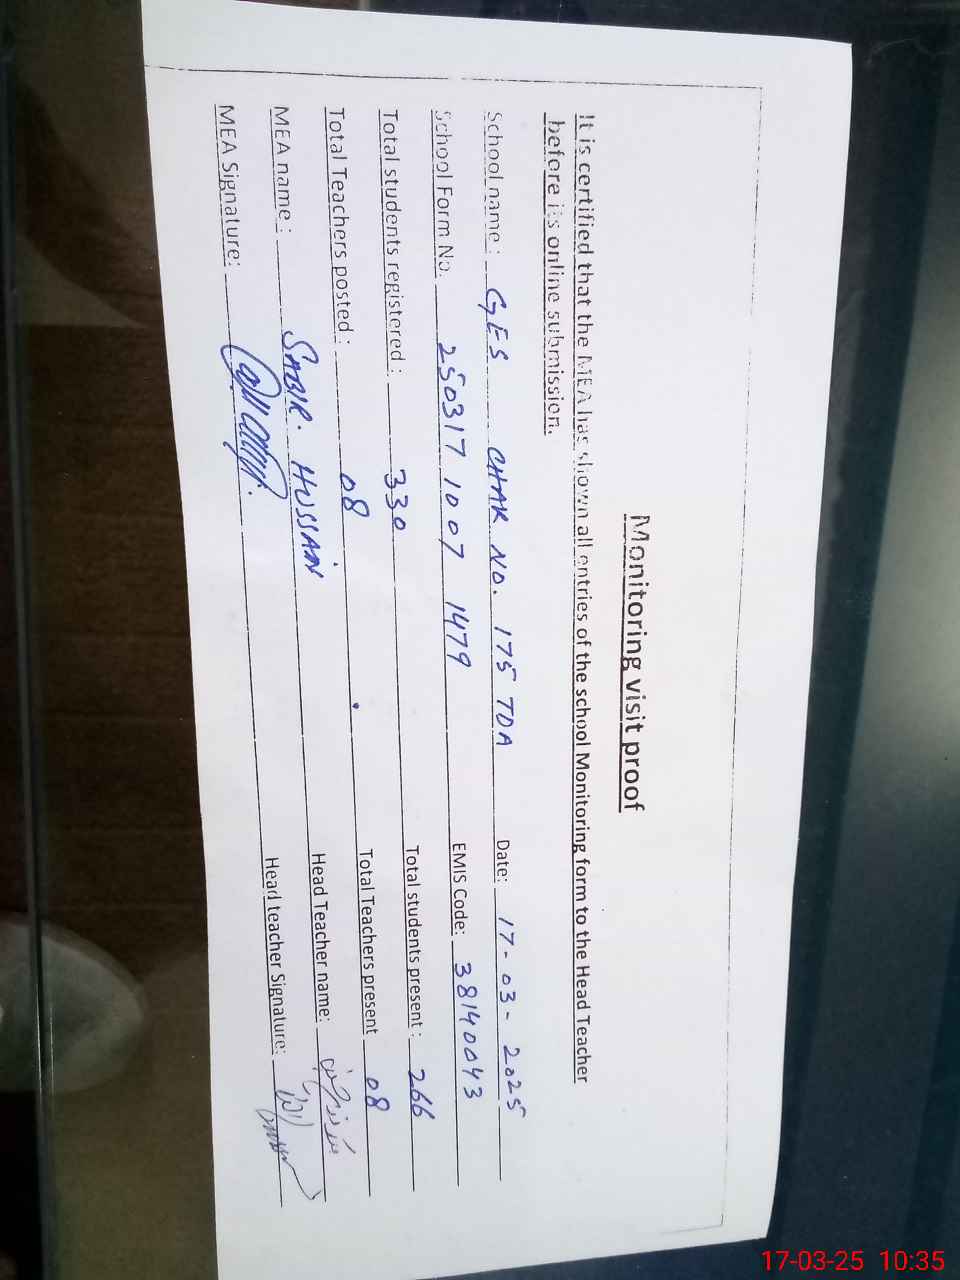 Monitoring visit proof
It is certified that the MEA has shown all entries of the school Monitoring form to the Head Teacher
before its online submission.
School name: GES CHAK NO. 175 TDA Date: 17-03-2025
School Form No. 250317 1007 1479 EMIS Code: 38140043
Total students registered: 330 Total students present: 266
Total Teachers posted: 08 Total Teachers present 08
MEA name: SABIR. HUSSAIN Head Teacher name:
MEA Signature: Head teacher Signature:
17-03-25 10:35